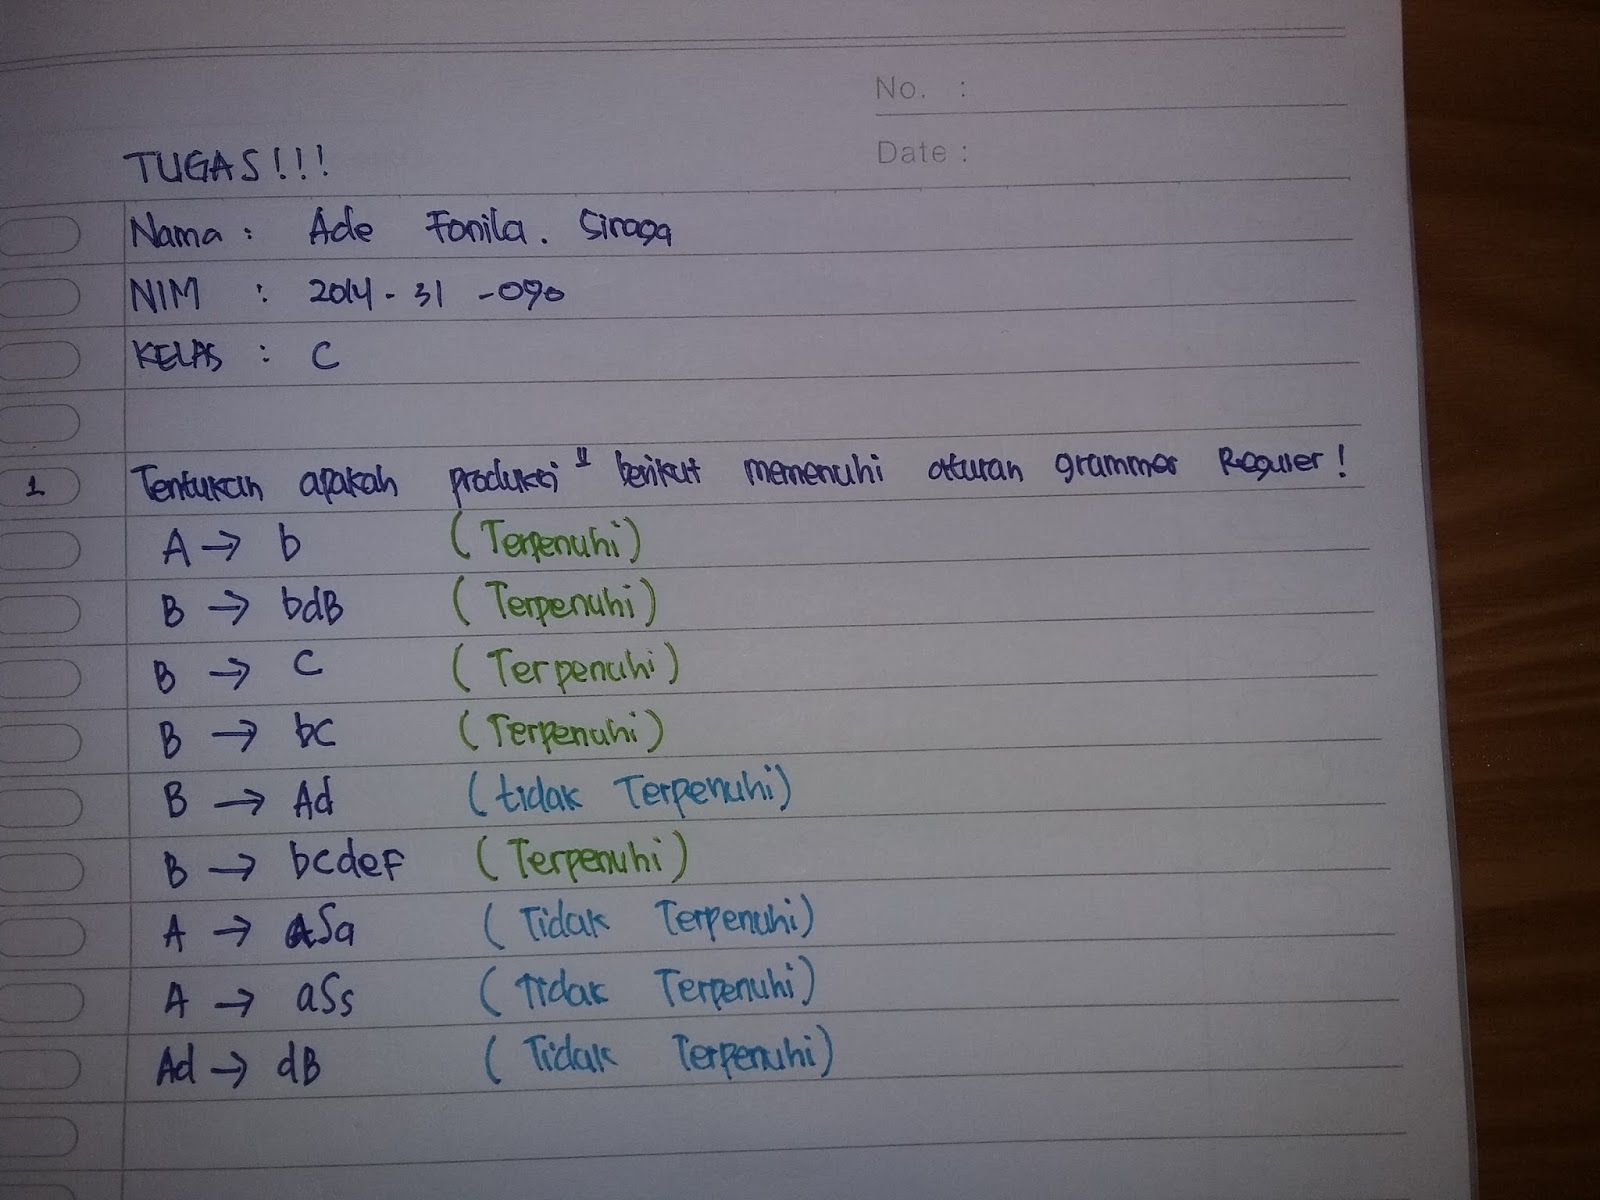 No. :
Date :
TUGAS!!!
Nama : Ade Fonila. Siraga
NIM : 2014 - 31 - 090
KELAS : C
1 Tentukan apakah produksi" berikut memenuhi aturan grammar Reguler!
A → b (Terpenuhi)
B → bdB (Terpenuhi)
B → C (Terpenuhi)
B → bC (Terpenuhi)
B → Ad (tidak Terpenuhi)
B → bcdef (Terpenuhi)
A → aSa (Tidak Terpenuhi)
A → aSs (Tidak Terpenuhi)
Ad → dB (Tidak Terpenuhi)